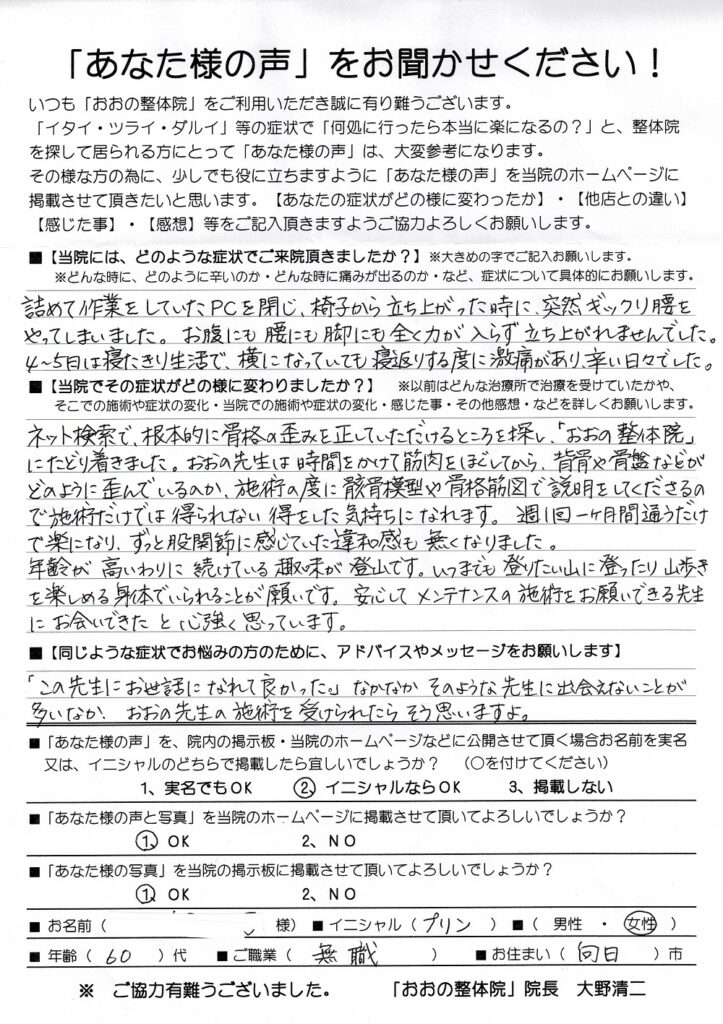 「あなた様の声」をお聞かせください！
いつも「おおの整体院」をご利用いただき誠に有り難うございます。
「イタイ・ツライ・ダルイ」等の症状で「何処に行ったら本当に楽になるの？」と、整体院
を探して居られる方にとって「あなた様の声」は、大変参考になります。
その様な方の為に、少しでも役に立ちますように「あなた様の声」を当院のホームページに
掲載させて頂きたいと思います。【あなたの症状がどの様に変わったか】・【他店との違い】
【感じた事】・【感想】等をご記入頂きますようご協力よろしくお願いします。
■【当院には、どのような症状でご来院頂きましたか？】※大きめの字でご記入お願いします。
※どんな時に、どのように辛いのか・どんな時に痛みが出るのか・など、症状について具体的にお願いします。
詰めて作業をしていたPCを閉じ、椅子から立ち上がった時に、突然ギックリ腰を
やってしまいました。お腹にも腰にも脚にも全く力が入らず立ち上がれませんでした。
4〜5日は寝たきり生活で、横になっていても寝返りする度に激痛があり、辛い日々でした。
■【当院でその症状がどの様に変わりましたか？】 ※以前はどんな治療所で治療を受けていたかや、
そこでの施術や症状の変化・当院での施術や症状の変化・感じた事・その他感想・などを詳しくお願いします。
ネット検索で、根本的に骨格の歪みを正していただけるところを探し、「おおの整体院」
にたどり着きました。おおの先生は時間をかけて筋肉をほぐしてから、背骨や骨盤などが
どのように歪んでいるのか、施術の度に骸骨模型や骨格筋図で説明をしてくださるの
で施術だけでは得られない得をした気持ちになれます。週1回一ヶ月間通うだけ
で楽になり、ずっと股関節に感じていた違和感も無くなりました。
年齢が高いわりに続けている趣味が登山です。いつまでも登りたい山に登ったり山歩き
を楽しめる身体でいられることが願いです。安心してメンテナンスの施術をお願いできる先生
にお会いできたと心強く思っています。
■【同じような症状でお悩みの方のために、アドバイスやメッセージをお願いします】
「この先生にお世話になれて良かった。」なかなかそのような先生に出会えないことが
多いなか、おおの先生の施術を受けられたらそう思いますよ。
■「あなた様の声」を、院内の掲示板・当院のホームページなどに公開させて頂く場合お名前を実名
又は、イニシャルのどちらで掲載したら宜しいでしょうか？ （○を付けてください）
1、実名でもOK ②、イニシャルならOK 3、掲載しない
■「あなた様の声と写真」を当院のホームページに掲載させて頂いてよろしいでしょうか？
①、OK 2、NO
■「あなた様の写真」を当院の掲示板に掲載させて頂いてよろしいでしょうか？
①、OK 2、NO
■ お名前（ 様）■ イニシャル（ プリン ）■（ 男性 ・ 女性 ）
■ 年齢（ 60 ）代 ■ ご職業（ 無職 ） ■ お住まい（ 向日 ）市
※ ご協力有難うございました。 「おおの整体院」院長 大野清二